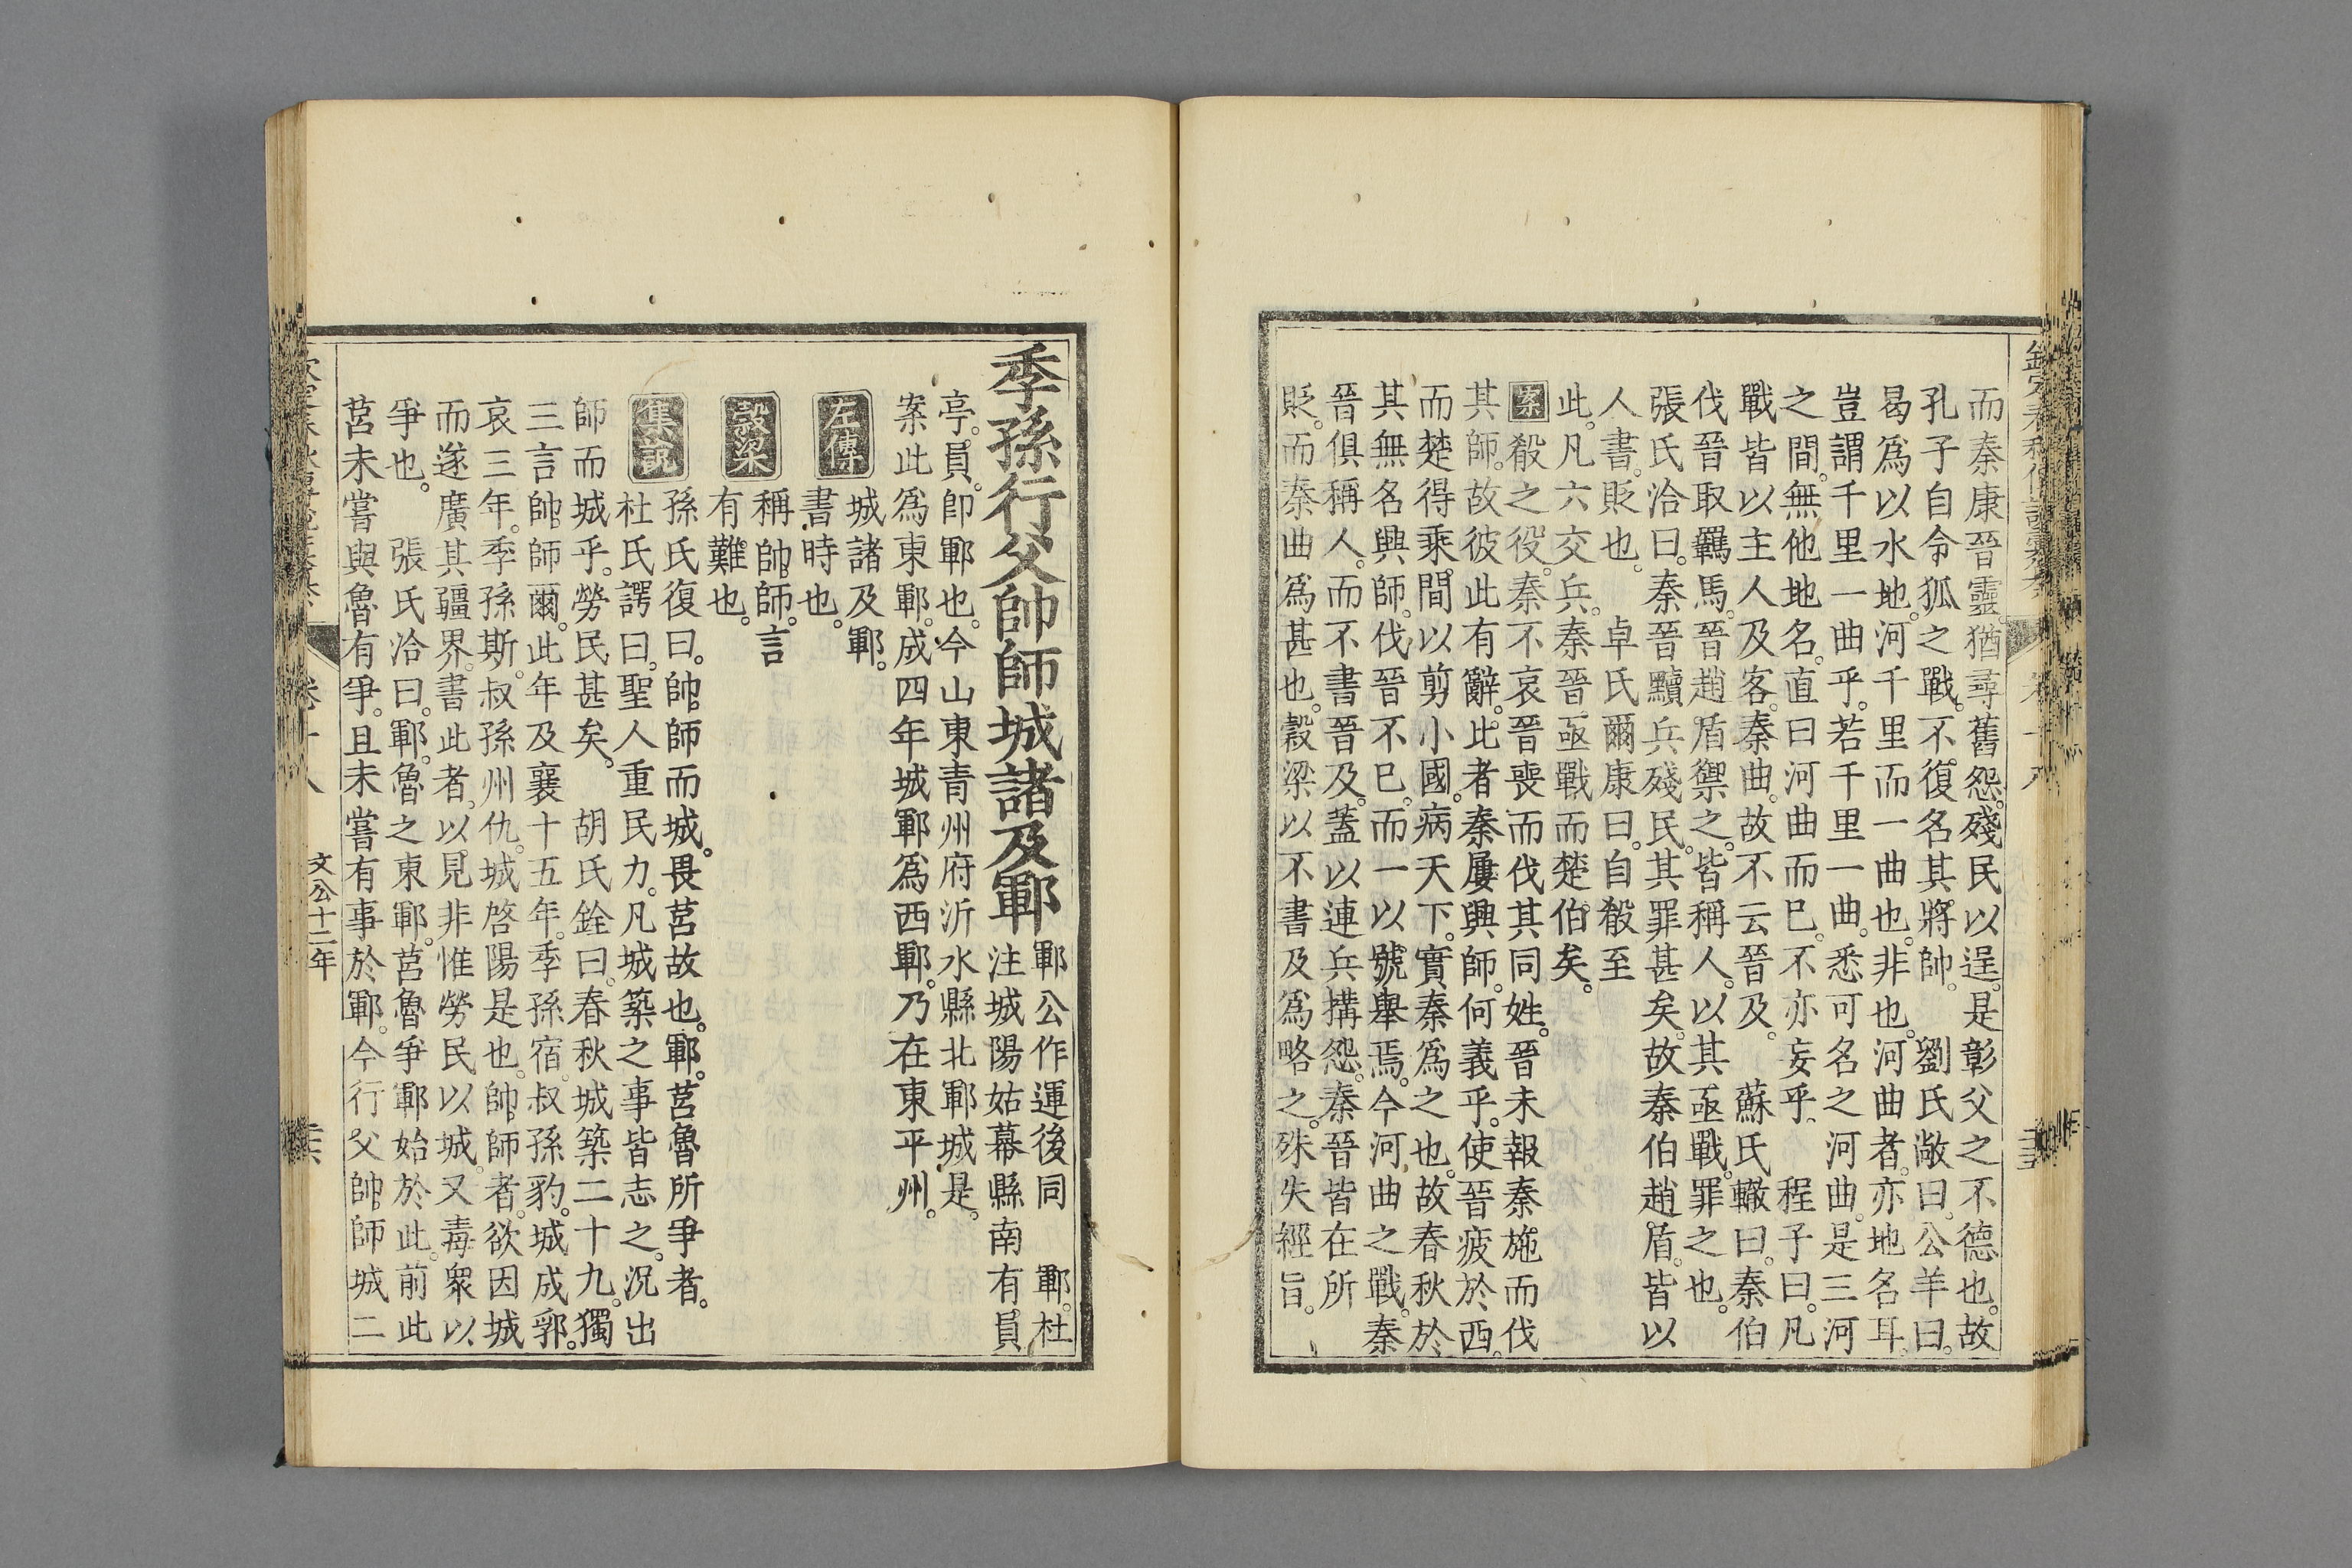 而秦康晉靈猶尋舊怨殘民以逞是彰父之不德也故
孔子自令狐之戰不復名其將帥　劉氏敞曰公羊曰
曷爲以水地河千里而一曲也非也河曲者亦地名耳
豈謂千里一曲乎若千里一曲悉可名之河曲是三河
之間無他地名直曰河曲而已不亦妄乎　程子曰凡
戰皆以主人及客秦曲故不云晉及　蘇氏轍曰秦伯
伐晉取羈馬晉趙盾禦之皆稱人以其亟戰罪之也
張氏洽曰秦晉黷兵殘民其罪甚矣故秦伯趙盾皆以
人書貶也　卓氏爾康曰自殽至
此凡六交兵秦晉亟戰而楚伯矣
案殽之役秦不哀晉喪而伐其同姓晉未報秦施而伐
其師故彼此有辭此者秦屢興師何義乎使晉疲於西
而楚得乘間以剪小國病天下實秦爲之也故春秋於
其無名興師伐晉不已而一以號舉焉今河曲之戰秦
晉俱稱人而不書晉及蓋以連兵搆怨秦晉皆在所
貶而秦曲爲甚也穀梁以不書及爲略之殊失經旨
季孫行父帥師城諸及鄆
鄆公作運後同　鄆杜
注城陽姑幕縣南有員
亭員卽鄆也今山東青州府沂水縣北鄆城是
案此爲東鄆成四年城鄆爲西鄆乃在東平州
左傳
城諸及鄆
書時也
穀梁
稱帥師言
有難也
集說
孫氏復曰帥師而城畏莒故也鄆莒魯所爭者
杜氏諤曰聖人重民力凡城築之事皆志之況出
師而城乎勞民甚矣　胡氏銓曰春秋城築二十九獨
三言帥師爾此年及襄十五年季孫宿叔孫豹城成郛
哀三年季孫斯叔孫州仇城啓陽是也帥師者欲因城
而遂廣其疆界書此者以見非惟勞民以城又毒衆以
爭也　張氏洽曰鄆魯之東鄆莒魯爭鄆始於此前此
莒未嘗與魯有爭且未嘗有事於鄆今行父帥師城二
卷十八
文公十二年